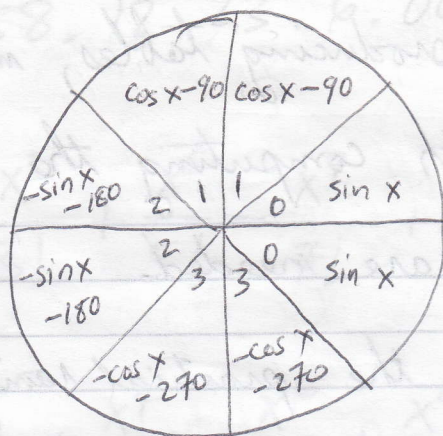 cos x-90 cos x-90
-sin x
-180
2 1 1 0
sin x
2 3 3 0
-sin x
-180
sin x
-cos x
-270
-cos x
-270